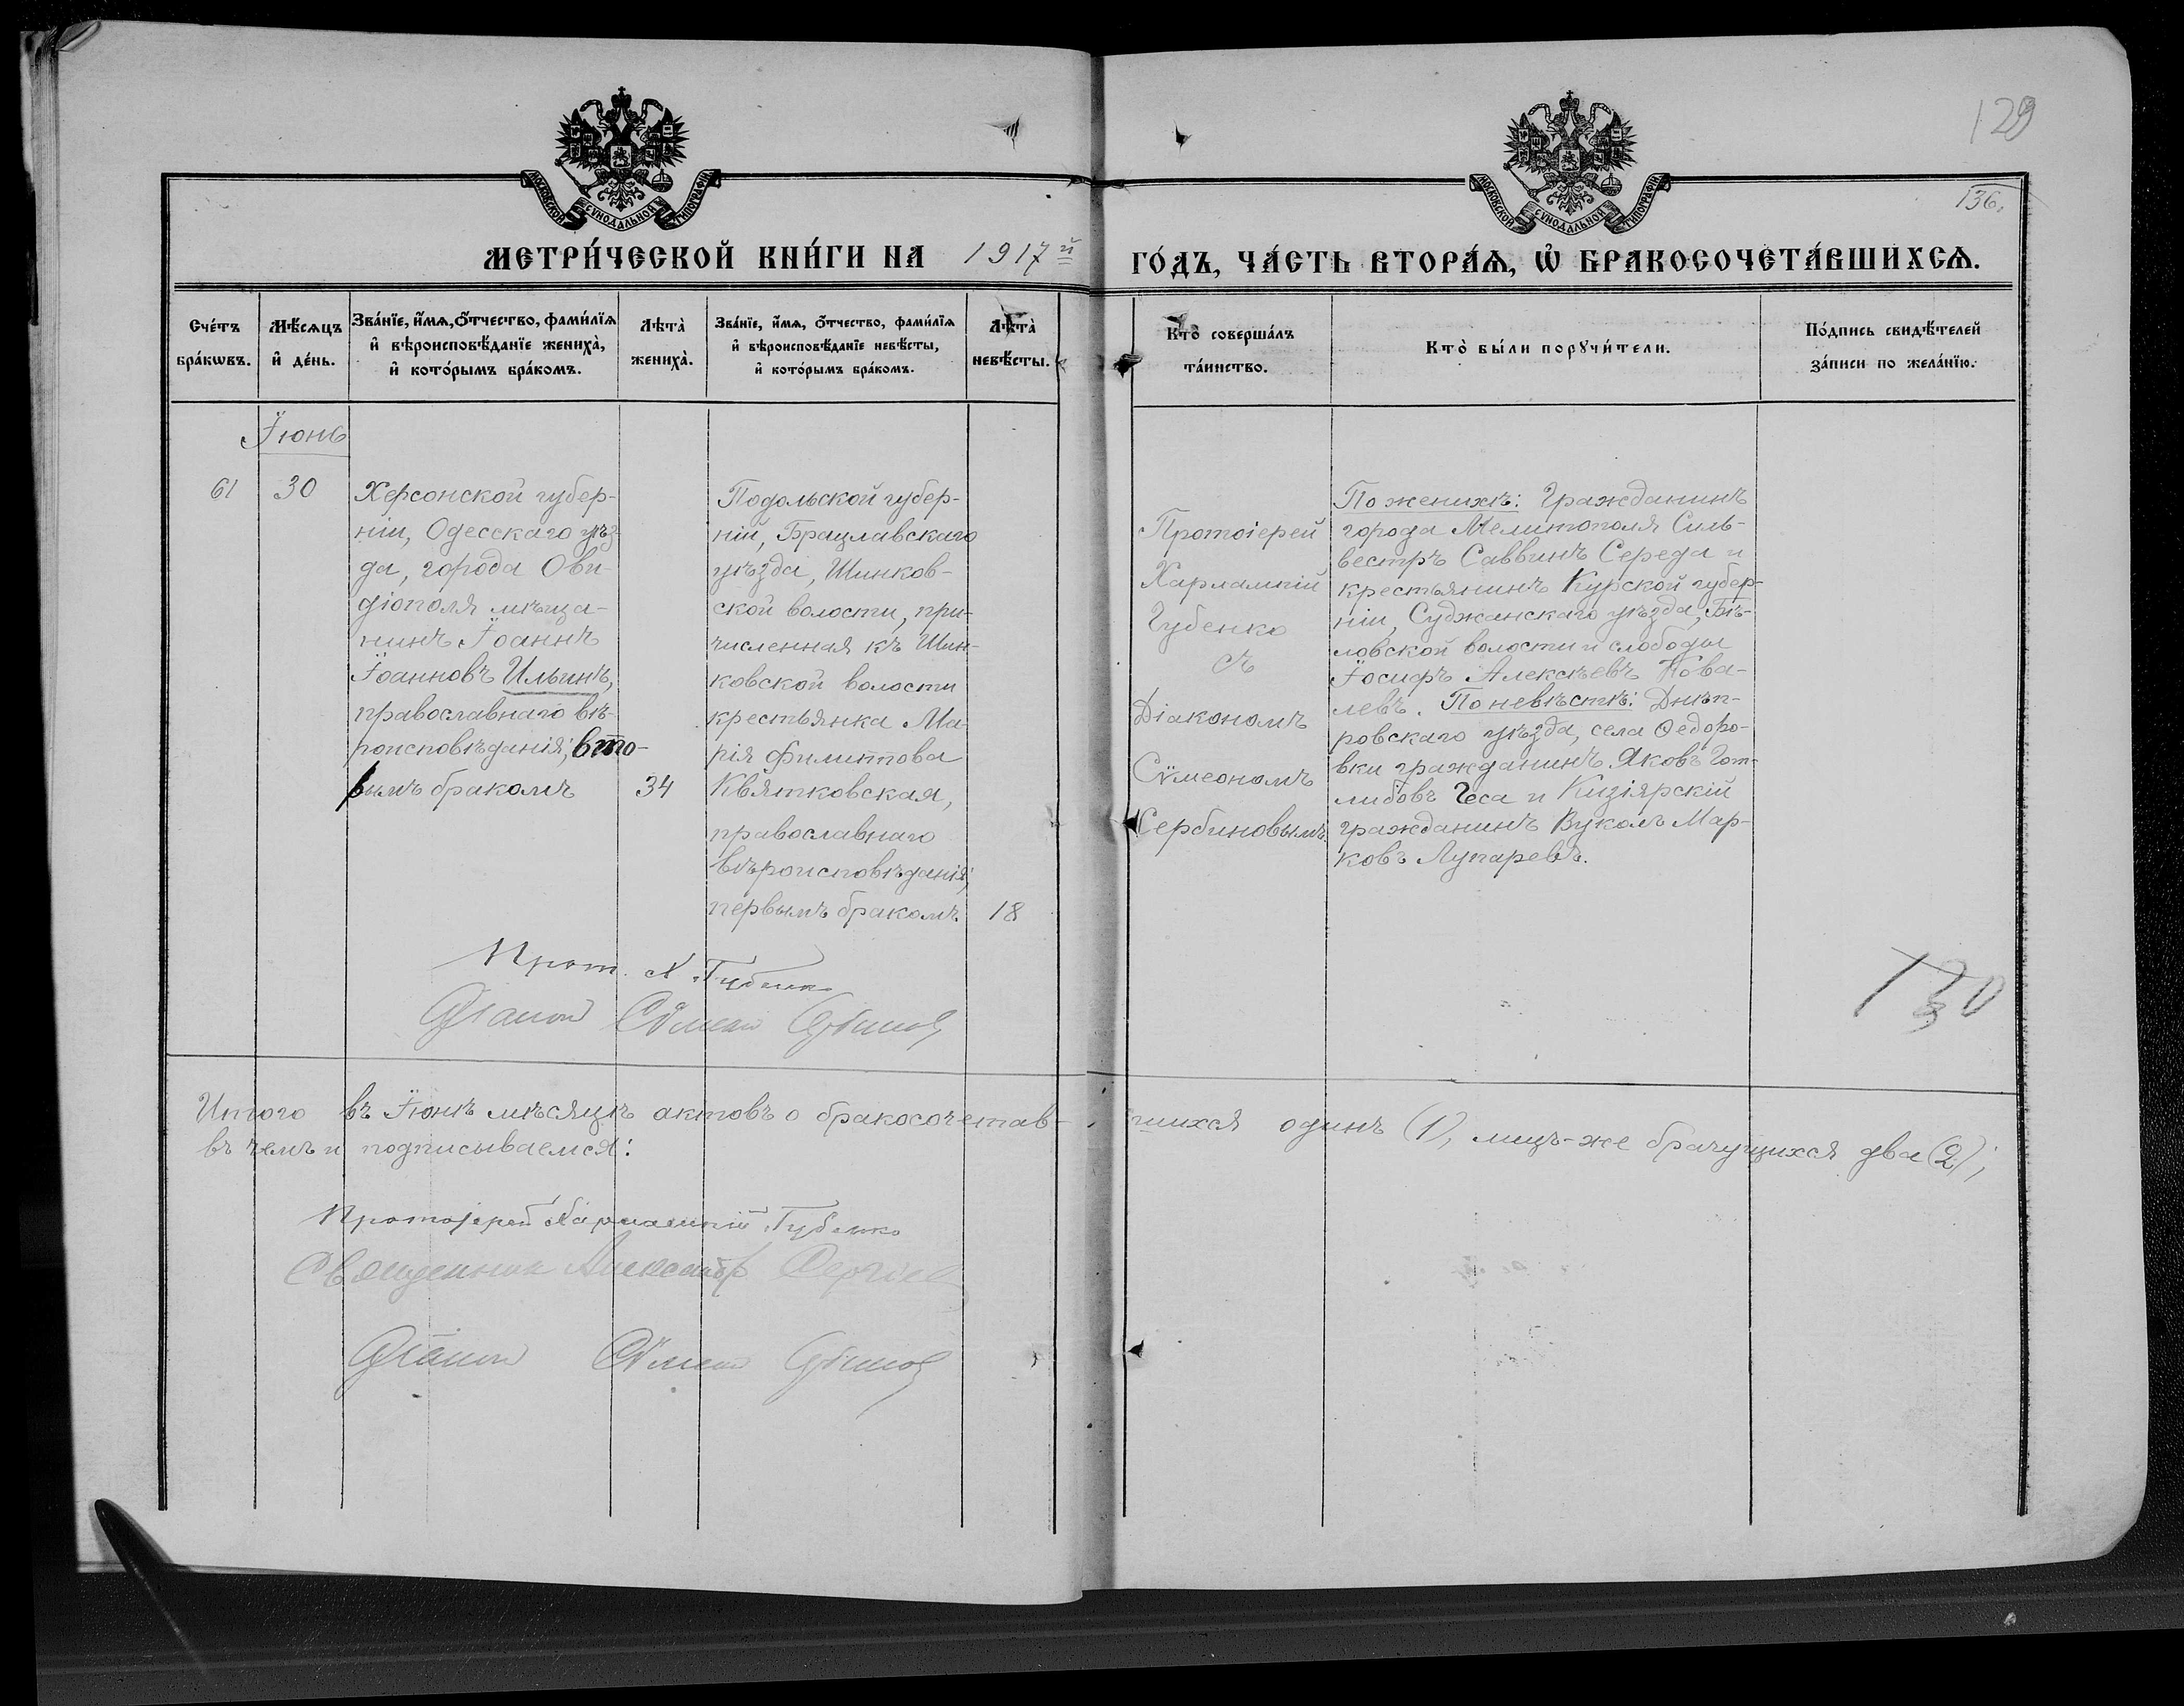 129
136.
МОСКОВСКОЙ СУНОДАЛЬНОЙ ТИПОГРАФІИ
МОСКОВСКОЙ СУНОДАЛЬНОЙ ТИПОГРАФІИ
МЕТРИ́ЧЕСКОЙ КНИ́ГИ НА 1917й ГО́ДЪ, ЧА́СТЬ ВТОРА́Ѧ, Ѡ҆ БРАКОСОЧЕТА́ВШИХСѦ.
Сче́тъ
бра́кѡвъ.
Мѣ́сѧцъ
и҆ де́нь.
Зва́нїе, и҆́мѧ, о҆́тчество, фами́лїѧ
и҆ вѣроисповѣ́данїе жениха̀,
и҆ кото́рымъ бра́комъ.
Лѣта̀
жениха̀.
Зва́нїе, и҆́мѧ, о҆́тчество, фами́лїѧ
и҆ вѣроисповѣ́данїе невѣ́сты,
и҆ кото́рымъ бра́комъ.
Лѣта̀
невѣ́сты.
Кто̀ соверша́лъ
та́инство.
Кто̀ бы́ли порꙋчи́тели.
По́дпись свидѣ́телей
за́писи по жела́нїю.
Їюнь
61
30
Херсонской губер-
ніи, Одесскаго уѣз-
да, города Ови-
діополя мѣща-
нинъ Їоаннъ
Їоанновъ Ильинъ,
православнаго вѣ-
роисповѣданія; вто-
рымъ бракомъ
34
Подольской губер-
ній, Брацлавскаго
уѣзда, Шинков-
ской волости, при-
численная къ Шин-
ковской волости
крестьянка Ма-
рія Филиппова
Квятковская,
православнаго
вѣроисповѣданія;
первымъ бракомъ.
18
Протоіерей
Харлампій
Губенко
съ
Діакономъ
Сѵмеономъ
Сербиновымъ.
По женихѣ: Гражданинъ
города Мелитополя Силь-
вестръ Саввинъ Середа и
крестьянинъ Курской губер-
ніи, Суджанскаго уѣзда, Бѣ-
ловской волости и слободы
Їосифъ Алексѣевъ Кова-
левъ. По невѣстѣ: Днѣп-
ровскаго уѣзда, села Ѳедоро-
вки гражданинъ Яковъ Гот-
либовъ Геса и Кизіярскій
гражданинъ Вуколъ Мар-
ковъ Лупаревъ.
Прот. Х. Губенко
Діаконъ Сѵмеонъ Сербиновъ
130
Итого въ Їюнѣ мѣсяцѣ актовъ о бракосочетав-
шихся одинъ (1), лицъ-же брачущихся два (2);
въ чемъ и подписываемся:
Протоіерей Харлампій Губенко
Священникъ Александръ Сергіевъ
Діаконъ Сѵмеонъ Сербиновъ